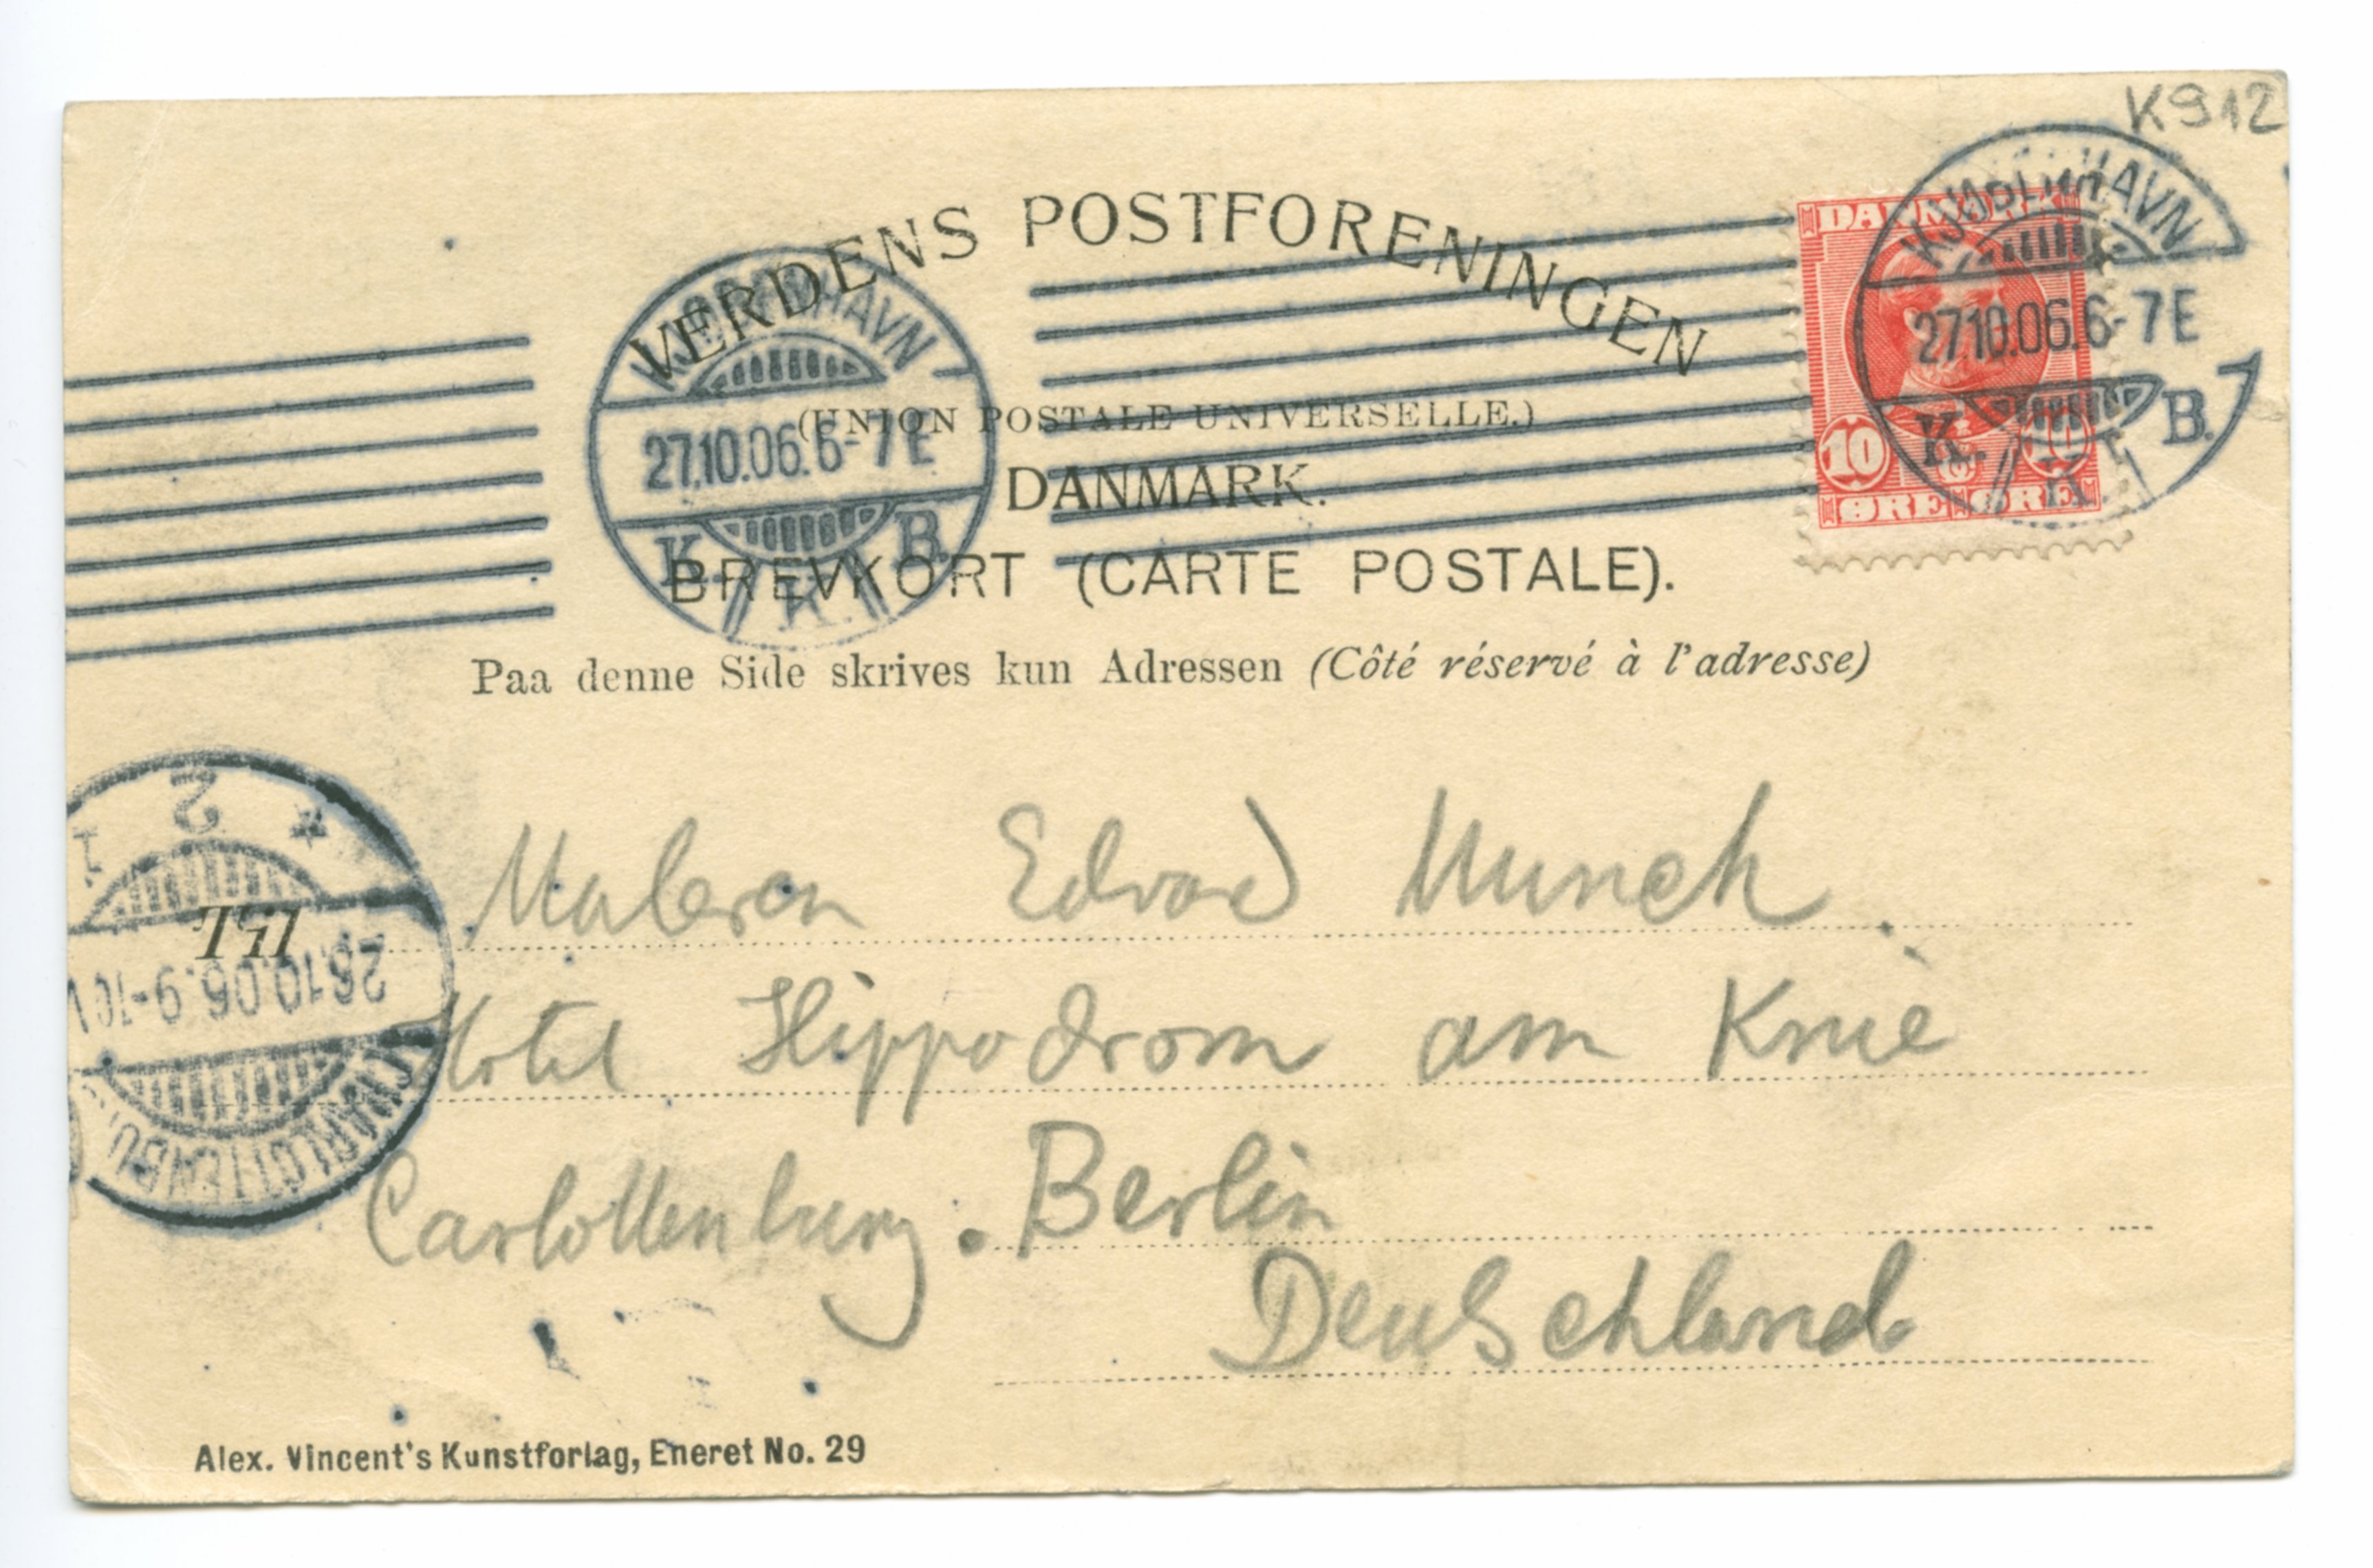 K912
VERDENS POSTFORENINGEN
(UNION POSTALE UNIVERSELLE.)
DANMARK.
BREVKORT (CARTE POSTALE).
Paa denne Side skrives kun Adressen (Côté réservé à l'adresse)
KJØBENHAVN
27.10.06. 6-7 E
K. B.
K.
DANMARK
10 10
ØRE ØRE
KJØBENHAVN
27.10.06. 6-7 E
K. B.
K.
2
1 *
28.10.06. 9-10 V
CHARLOTTENBU
Til
Maleren Edvard Munch.
Hotel Hippodrom am Knie
Carlottenburg. Berlin
Deutschland
Alex. Vincent's Kunstforlag, Eneret No. 29